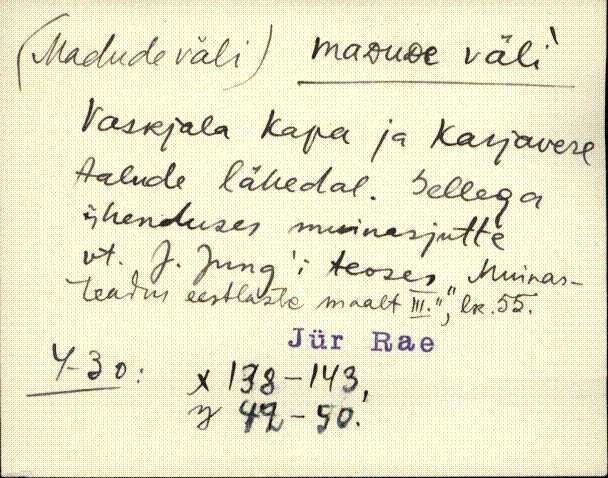 (Madude väli) madude väli
Vaskjala Kapa ja Karjavere
talude lähedal. Sellega
ühenduses muinasjutte
vt. J. Jung'i teoses Muinas-
teadus eestlaste maalt III.", lk. 55.
Jür Rae
4-30: x 138-143,
y 42-50.